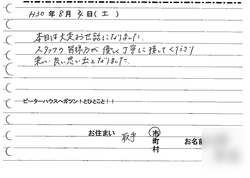 H30年8月 日(土)
本日は大変お世話になりました。
スタッフの皆様方が優しく丁寧に接してくださり
楽しい良い思い出となりました。
ピーターハウスへガツン!とひとこと!!
お住まい 取手 市町村 お名前